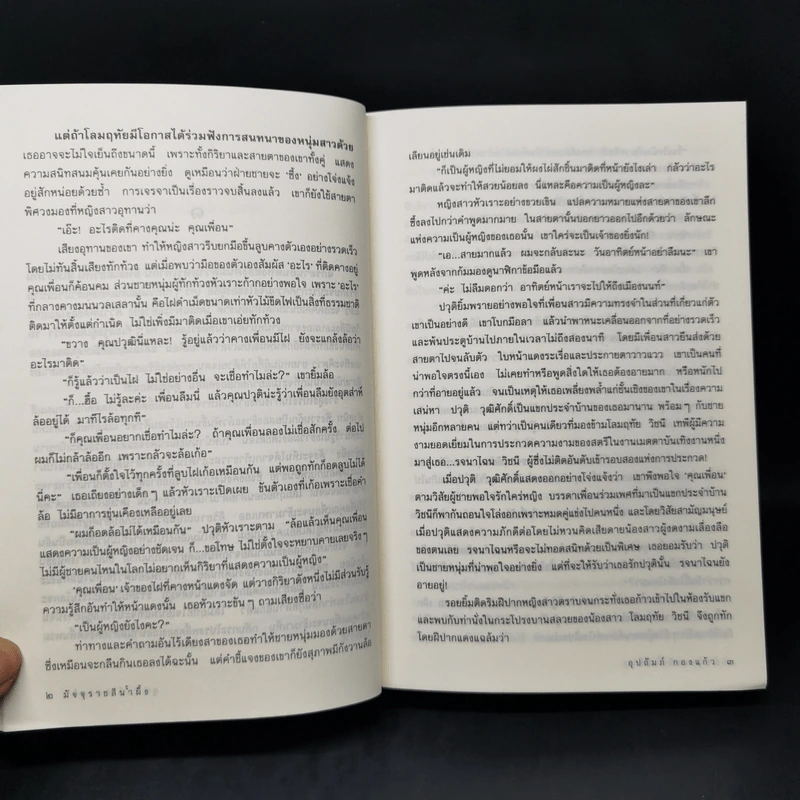 แต่ถ้าโลมฤทัยมีโอกาสได้ร่วมฟังการสนทนาของหนุ่มสาวด้วย
เธออาจจะไม่ใจเย็นถึงขนาดนี้ เพราะทั้งกิริยาและสายตาของเขาทั้งคู่ แสดง
ความสนิทสนมคุ้นเคยกันอย่างยิ่ง ดูเหมือนว่าฝ่ายชายจะ ‘ซึ้ง’ อย่างโจ่งแจ้ง
อยู่สักหน่อยด้วยซ้ำ การเจรจาเป็นเรื่องราวจบสิ้นลงแล้ว เขาก็ยังใช้สายตา
พิศวงมองที่หญิงสาวอุทานว่า
“เอ๊ะ! อะไรติดที่คางคุณน่ะ คุณเพื่อน”
เสียงอุทานของเขา ทำให้หญิงสาวรีบยกมือขึ้นลูบคางตัวเองอย่างรวดเร็ว
โดยไม่ทันสิ้นเสียงทักท้วง แต่เมื่อพบว่ามือของตัวเองสัมผัส ‘อะไร’ ที่ติดคางอยู่
คุณเพื่อนก็ค้อนคม ส่วนชายหนุ่มผู้ทักท้วงหัวเราะก้ากอย่างพอใจ เพราะ ‘อะไร’
ที่กลางคางมนนวลเสลานั้น คือไฝดำเม็ดขนาดเท่าหัวไม้ขีดไฟเป็นสิ่งที่ธรรมชาติ
ติดมาให้ตั้งแต่กำเนิด ไม่ใช่เพิ่งมีมาติดเมื่อเขาเอ่ยทักท้วง
“ขวาง คุณปวุฒินี่แหละ! รู้อยู่แล้วว่าคางเพื่อนมีไฝ ยังจะแกล้งล้อว่า
อะไรมาติด”
“ก็รู้แล้วว่าเป็นไฝ ไม่ใช่อย่างอื่น จะเชื่อทำไมล่ะ?” เขายิ้มล้อ
“ก็...ฮื้อ ไม่รู้ละค่ะ เพื่อนลืมนี่ แล้วคุณปวุติน่ะรู้ว่าเพื่อนลืมยังอุตส่าห์
ล้ออยู่ได้ มาทีไรล้อทุกที”
“ก็คุณเพื่อนอยากเชื่อทำไมล่ะ? ถ้าคุณเพื่อนลองไม่เชื่อสักครั้ง ต่อไป
ผมก็ไม่กล้าล้ออีก เพราะกลัวจะล้อเก้อ”
“เพื่อนก็ตั้งใจไว้ทุกครั้งที่ลูบไฝเก้อเหมือนกัน แต่พอถูกทักก็อดลูบไม่ได้
นี่คะ” เธอเถียงอย่างเด็กๆ แล้วหัวเราะเปิดเผย ขันตัวเองที่เก้อเพราะเชื่อคำ
ล้อ ไม่มีอาการขุ่นเคืองเหลืออยู่เลย
“ผมก็อดล้อไม่ได้เหมือนกัน” ปวุติหัวเราะตาม “ล้อแล้วเห็นคุณเพื่อน
แสดงความเป็นผู้หญิงอย่างชัดเจน ก็...ขอโทษ ไม่ใช่ตั้งใจจะหยาบคายเลยจริงๆ
ไม่มีผู้ชายคนไหนในโลกไม่อยากเห็นกิริยาที่แสดงความเป็นผู้หญิง”
‘คุณเพื่อน’ เจ้าของไฝที่คางหน้าแดงจัด แต่วางกิริยาดังหนึ่งไม่มีส่วนรับรู้
ความรู้สึกอันทำให้หน้าแดงนั้น เธอหัวเราะขันๆ ถามเสียงซื่อว่า
“เป็นผู้หญิงยังไงคะ?”
ท่าทางและคำถามอันไร้เดียงสาของเธอทำให้ชายหนุ่มมองด้วยสายตา
ซึ่งเหมือนจะกลืนกินเธอลงได้ฉะนั้น แต่คำชี้แจงของเขาก็ยังสุภาพมีกังวานล้อ
๒ มัจจุราชสีน้ำผึ้ง
เลียนอยู่เช่นเดิม
“ก็เป็นผู้หญิงที่ไม่ยอมให้ผงไฝสักชิ้นมาติดที่หน้ายังไงเล่า กลัวว่าอะไร
มาติดแล้วจะทำให้สวยน้อยลง นี่แหละคือความเป็นผู้หญิงละ”
หญิงสาวหัวเราะอย่างขวยเขิน แปลความหมายแห่งสายตาของเขาลึก
ซึ้งลงไปกว่าคำพูดมากมาย ในสายตานั้นบอกยาวออกไปอีกด้วยว่า ลักษณะ
แห่งความเป็นผู้หญิงของเธอนั้น เขาใคร่จะเป็นเจ้าของยิ่งนัก!
“เอ...สายมากแล้ว ผมจะกลับละนะ วันอาทิตย์หน้าอย่าลืมนะ” เขา
พูดหลังจากก้มมองดูนาฬิกาข้อมือแล้ว
“ค่ะ ไม่ลืมดอกว่า อาทิตย์หน้าเราจะไปให้ถึงเมืองนนท์”
ปวุติยิ้มพรายอย่างพอใจที่เพื่อนสาวมีความทรงจำในส่วนที่เกี่ยวแก่ตัว
เขาเป็นอย่างดี เขาโบกมือลา แล้วนำพาหนะเคลื่อนออกจากที่อย่างรวดเร็ว
และพ้นประตูบ้านไปภายในเวลาไม่ถึงสองนาที โดยมีเพื่อนสาวยืนส่งด้วย
สายตาไปจนลับตัว ใบหน้าแดงระเรื่อและประกายตาวาวแวว เขาเป็นคนที่
น่าพอใจตรงนี้เอง ไม่เคยทำหรือพูดสิ่งใดให้เธอต้องอายมาก หรือหนักไป
กว่าที่อายอยู่แล้ว จนเป็นเหตุให้เธอเพลี่ยงพล้ำแก่ชั้นเชิงของเขาในเรื่องความ
เสน่หา ปวุติ วุฒิศักดิ์เป็นแขกประจำบ้านของเธอมานาน พร้อมๆ กับชาย
หนุ่มอีกหลายคน แต่ทว่าเป็นคนเดียวที่มองข้ามโลมฤทัย วิชนี เทพีผู้มีความ
งามยอดเยี่ยมในการประกวดความงามของสตรีในงานเมตตาบันเทิงงานหนึ่ง
มาสู่เธอ...รจนาไฉน วิชนี ผู้ซึ่งไม่ติดอันดับเข้ารอบสองแห่งการประกวด!
เมื่อปวุติ วุฒิศักดิ์แสดงออกอย่างโจ่งแจ้งว่า เขาพึงพอใจ ‘คุณเพื่อน’
ตามวิสัยผู้ชายพอใจรักใคร่หญิง บรรดาเพื่อนร่วมเพศที่มาเป็นแขกประจำบ้าน
วิชนีก็พากันถอนใจโล่งอกเพราะหมดคู่แข่งไปคนหนึ่ง และโดยวิสัยสามัญมนุษย์
เมื่อปวุติแสดงความภักดีต่อโดยไม่หวนคิดเสียดายน้องสาวผู้งดงามเลื่องลือ
ของตนเลย รจนาไฉนหรือจะไม่ทอดสนิทด้วยเป็นพิเศษ เธอยอมรับว่า ปวุติ
เป็นชายหนุ่มที่น่าพอใจอย่างยิ่ง แต่ที่จะให้รับว่าเธอรักปวุตินั้น รจนาไฉนยัง
อายอยู่!
รอยยิ้มติดริมฝีปากหญิงสาวตราบจนกระทั่งเธอก้าวเข้าไปในห้องรับแขก
และพบกับท่านั่งในกระโปรงบานสลวยของน้องสาว โลมฤทัย วิชนี จึงถูกทัก
โดยฝีปากแดงแฉล้มว่า
อุปถัมภ์ กองแก้ว ๓